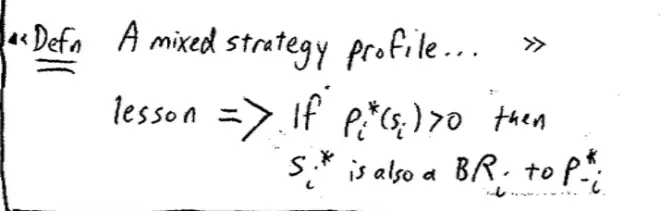 “Defn A mixed strategy profile... »
lesson => If p_i^*(s_i)>0 then
s_i^* is also a BR_i to p_{-i}^*